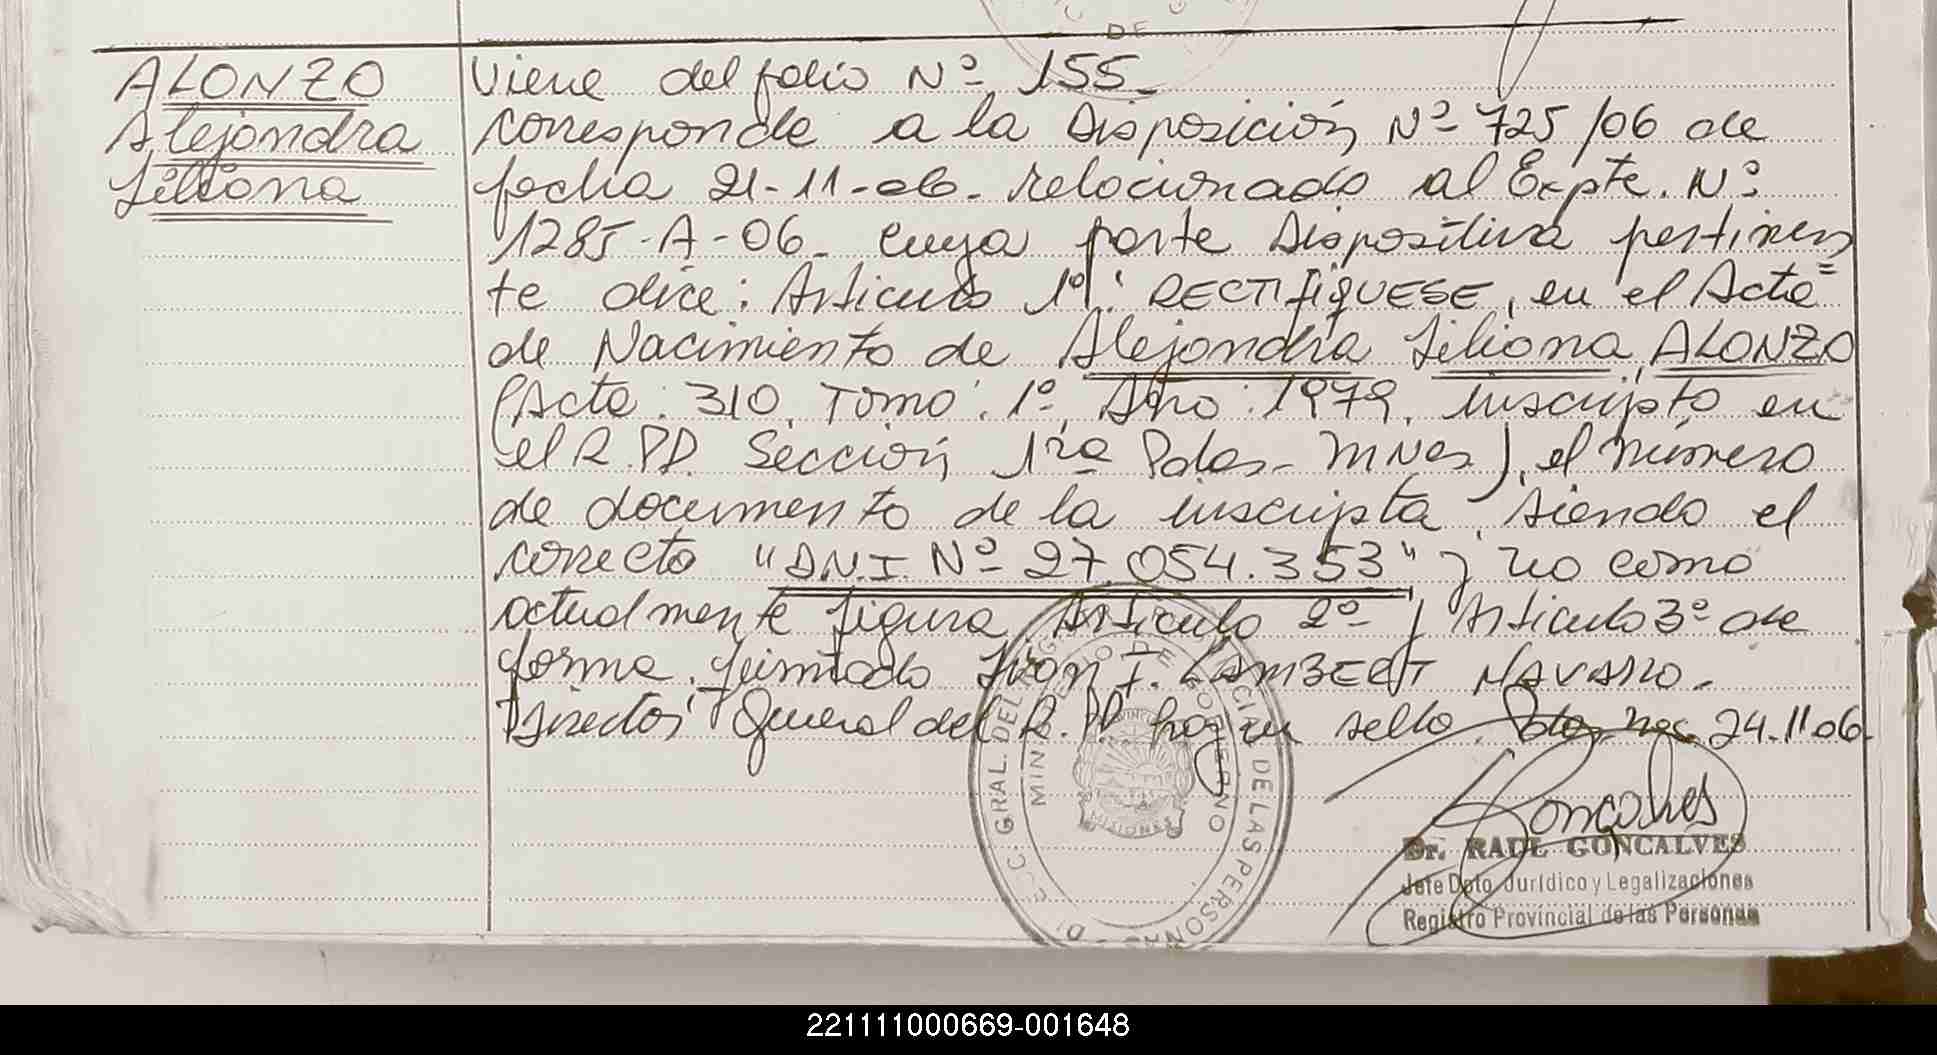 DE
ALONZO
Alejandra
Liliana
Viene del folio Nº 155.
corresponde a la Disposición Nº 725/06 de
fecha 21-11-06. relacionado al Expte. Nº
1285-A-06. cuya parte Dispositiva pertinen
te dice: Articulo 1º: RECTIFIQUESE, en el Acta
de Nacimiento de Alejandra Liliana ALONZO
(Acta: 310. Tomo: 1º. Año: 1979. inscripto en
el R.P.P. Sección 1ra Pdas-Mnes), el número
de documento de la inscripta, siendo el
correcto "D.N.I. Nº 27.054.353" y no como
actualmente figura. Articulo 2º y Articulo 3º de
forma. firmado Ivan I. LAMBERT NAVARRO.
Director General del R.P.P. hay un sello. Pdas. Mnes. 24.11.06.
GRAL. DEL REG. PROVINCIAL DE LAS PERSONAS
MINISTERIO DE GOBIERNO
MISIONES
Goncalves
Dr. RAUL GONCALVES
Jefe Dpto. Jurídico y Legalizaciones
Registro Provincial de las Personas
221111000669-001648